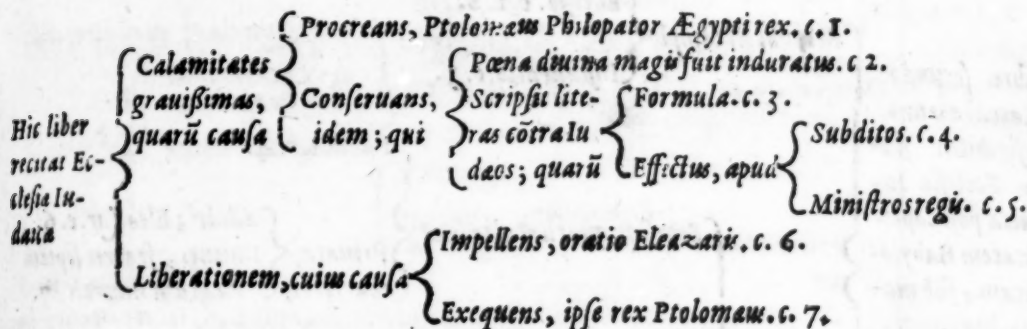 Hic liber
recitat Ec-
clesiæ Iu-
daicæ
Calamitates
grauißimas,
quarũ causa
Procreans, Ptolomæus Philopator Ægypti rex. c. 1.
Conseruans,
idem; qui
Pœna diuina magis fuit induratus. c 2.
Scripsit lite-
ras cõtra Iu
dæos; quarũ
Formula. c. 3.
Effectus, apud
Subditos. c. 4.
Ministros regis. c. 5.
Liberationem, cuius causa
Impellens, oratio Eleazaris. c. 6.
Exequens, ipse rex Ptolomæus. c. 7.